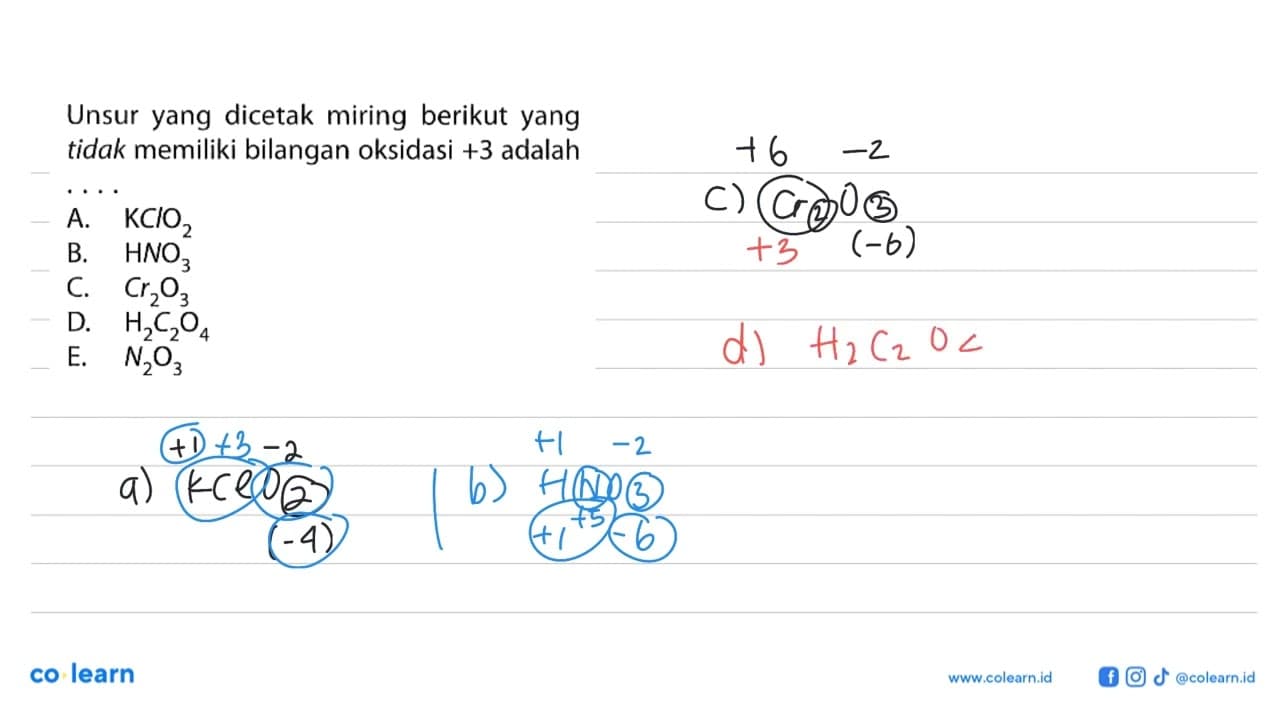 Unsur yang dicetak miring berikut yang
tidak memiliki bilangan oksidasi +3 adalah
....
A. KClO₂
B. HNO₃
C. Cr₂O₃
D. H₂C₂O₄
E. N₂O₃
+6 -2
c) Cr₂O₃
+3 (-6)
d) H₂C₂O
+1 +3 -2
a) KClO₂
(-4)
+1 -2
b) HNO₃
+1 +5 -6
co learn
www.colearn.id
@colearn.id